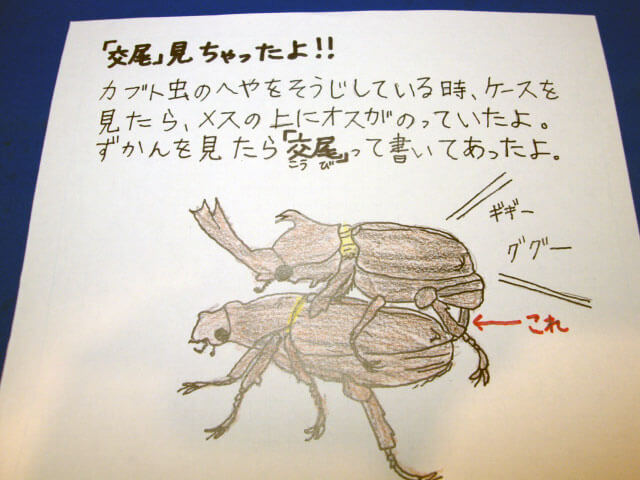 「交尾」見ちゃったよ!!
カブト虫のへやをそうじしている時、ケースを
見たら、メスの上にオスがのっていたよ。
ずかんを見たら「交尾」って書いてあったよ。
こうび
ギギー
ググー
←これ